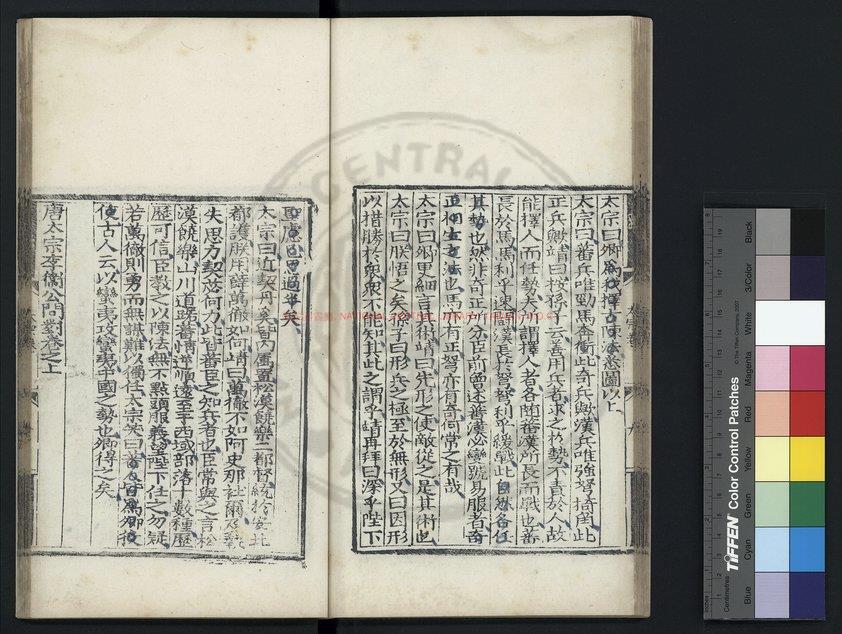 太宗曰卿爲我擇古陳法悉圖以上
太宗曰蕃兵唯勁馬奔衝此奇兵歟漢兵唯強弩掎角此
正兵歟靖曰按孫子云善用兵者求之於勢不責於人故
能擇人而任勢夫所謂擇人者各隨蕃漢所長而戰也蕃
長於馬馬利乎速鬪漢長於弩弩利乎緩戰此自然各任
其勢也然非奇正所分臣前曾述蕃漢必變號易服者奇
正相生之法也馬亦有正弩亦有奇何常之有哉
太宗曰卿更細言其術靖曰先形之使敵從之是其術也
太宗曰朕悟之矣孫子曰形兵之極至於無形又曰因形
以措勝於衆衆不能知其此之謂乎靖再拜曰深乎陛下
聖慮已思過半矣
太宗曰近契丹奚皆內屬置松漠饒樂二都督統於安北
都護朕用薛萬徹如何靖曰萬徹不如阿史那社爾及執
失思力契苾何力此皆蕃臣之知兵者也臣常與之言松
漠饒樂山川道路蕃情逆順遠至于西域部落十數種歷
歷可信臣敎之以陳法無不點頭服義望陛下任之勿疑
若萬徹則勇而無謀難以獨任太宗笑曰蕃人皆爲卿役
使古人云以蠻夷攻蠻夷中國之勢也卿得之矣
唐太宗李衛公問對卷之上
CENTRAL
TIFFEN Color Control Patches
© The Tiffen Company, 2007
Blue
Cyan
Green
Yellow
Red
Magenta
White
3/Color
Black
Inches
Centimetres